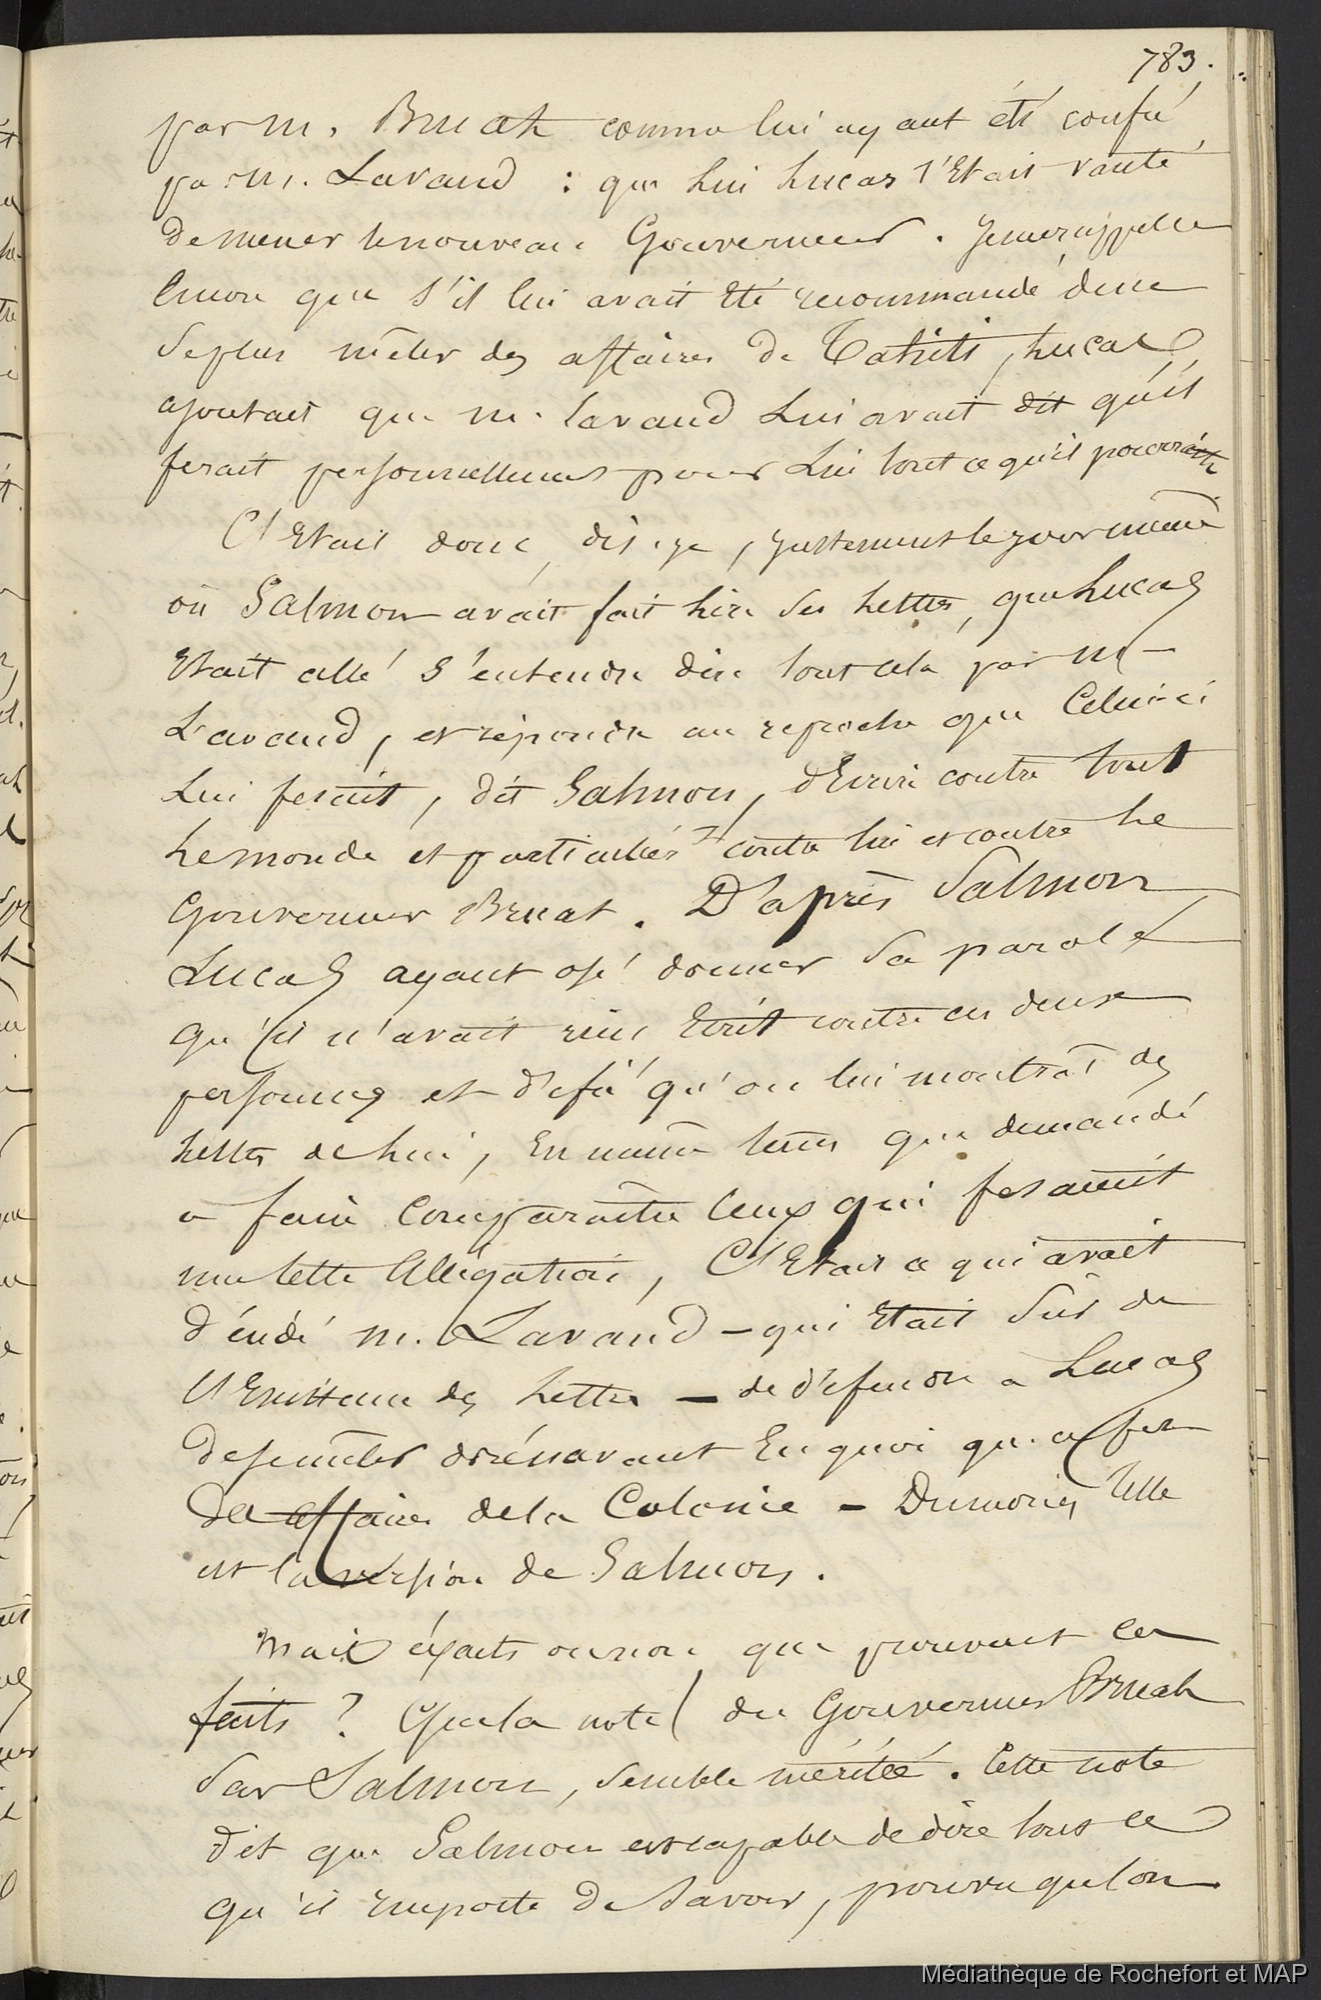 783.
par m. Bruat comme lui ayant été confié
par m. Lavaud : que lui Lucas s'Etait vanté
de mener le nouveau Gouverneur. Je me rappelle
Encore que s'il lui avait Eté recommandé de ne
se plus mêler des affaires de Tahiti, Lucas
ajoutait que m. Lavaud Lui avait dit qu'il
ferait personnellement pour Lui tout ce qu'il pourrait
C'Etait donc, dis-je, justement le jour même
où Salmon avait fait lire ses lettres, que Lucas
Etait allé s'entendre dire tout cela par m
Lavaud, et répondre au reproche que Celui-ci
Lui fesait, dit Salmon, d'Ecrire contre tout
le monde et particulièrt contre lui et contre le
Gouverneur Bruat. D'après Salmon
Lucas ayant osé donner sa parole
qu'il n'avait rien Ecrit contre ces deux
personnes et défié qu'on lui montrât des
lettres de lui, En même tems que demandé
a faire Comparaître Ceux qui fesaient
une telle Allégation, C'Etait ce qui avait
décidé m. Lavaud - qui Etait sûr de
l'Existence des lettres - de défendre a Lucas
de se mêler dorénavant En quoi que ce fut
des affaires de la Colonie - Du moins telle
est la version de Salmon.
Mais éxacts ou non que prouvent ces
faits ? Que la note du Gouverneur Bruat
sur Salmon, semble méritée. Cette note
dit que Salmon est capable de dire tout ce
qu'il importe de savoir, pourvu qu'on
Médiathèque de Rochefort et MAP